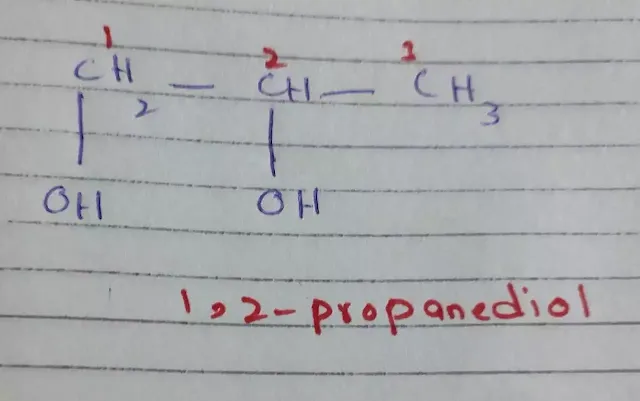 1 2 3
CH2 — CH — CH3
OH OH
1,2-propanediol